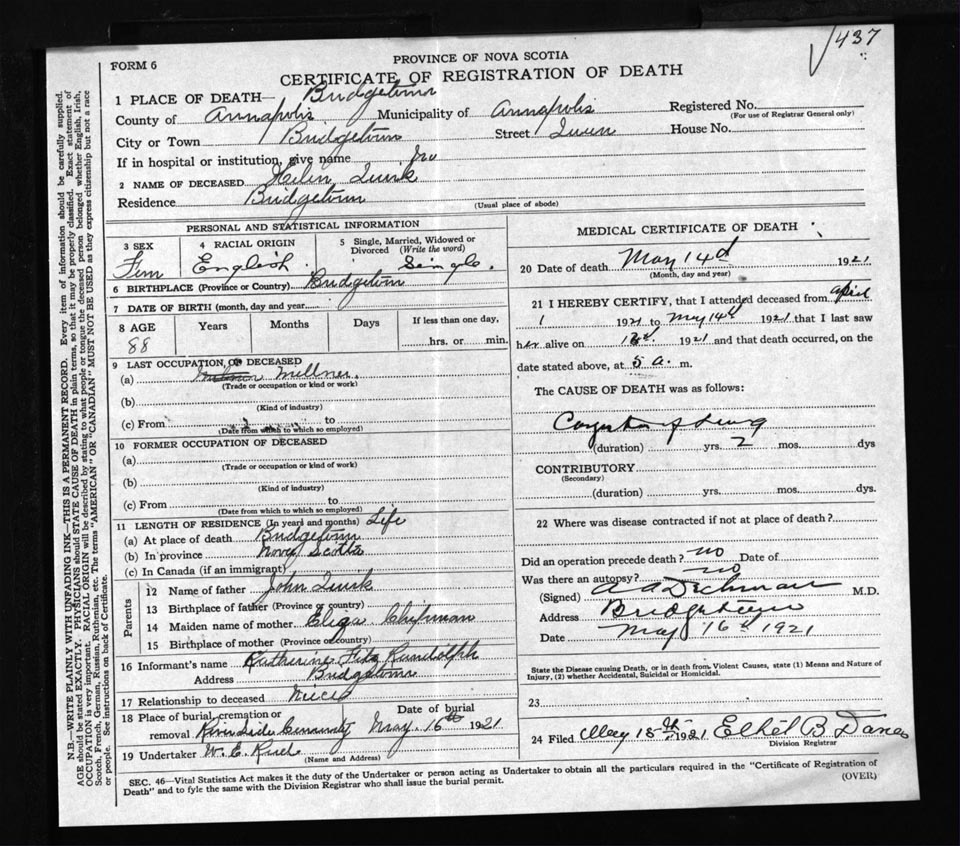 437
FORM 6
PROVINCE OF NOVA SCOTIA
CERTIFICATE OF REGISTRATION OF DEATH
1 PLACE OF DEATH— Bridgetown
County of Annapolis Municipality of Annapolis Registered No.
(For use of Registrar General only)
City or Town Bridgetown Street Queen House No.
If in hospital or institution, give name
2 NAME OF DECEASED Helen Quirk
Residence Bridgetown
(Usual place of abode)
PERSONAL AND STATISTICAL INFORMATION
3 SEX Fem
4 RACIAL ORIGIN English
5 Single, Married, Widowed or Divorced (Write the word) Seingle.
6 BIRTHPLACE (Province or Country) Bridgetown
7 DATE OF BIRTH (month, day and year)
8 AGE Years Months Days If less than one day,
88 hrs. or min.
9 LAST OCCUPATION OF DECEASED
(a) Milliner
(Trade or occupation or kind or work)
(b)
(Kind of industry)
(c) From to
(Date from which to which so employed)
10 FORMER OCCUPATION OF DECEASED
(a)
(Trade or occupation or kind of work)
(b)
(Kind of industry)
(c) From to
(Date from which to which so employed)
11 LENGTH OF RESIDENCE (In years and months) Life
(a) At place of death Bridgetown
(b) In province Nova Scotia
(c) In Canada (if an immigrant)
Parents
12 Name of father John Quirk
13 Birthplace of father (Province or country)
14 Maiden name of mother Eliza Chipman
15 Birthplace of mother (Province or country)
16 Informant's name Katherine Fitz Randolph
Address Bridgetown
17 Relationship to deceased Niece
18 Place of burial, cremation or Date of burial
removal Riverside Cemetery May 16th 1921
19 Undertaker W. E.
(Name and Address)
MEDICAL CERTIFICATE OF DEATH
20 Date of death May 14th 1921
(Month, day and year)
21 I HEREBY CERTIFY, that I attended deceased from April
1 1921 to May 14th 1921 that I last saw
her alive on 13th 1921 and that death occurred, on the
date stated above, at 5 a. m.
The CAUSE OF DEATH was as follows:
Congestion of Lung
(duration) yrs. 2 mos. dys
CONTRIBUTORY
(Secondary)
(duration) yrs. mos. dys.
22 Where was disease contracted if not at place of death?
Did an operation precede death? no Date of
Was there an autopsy? no
(Signed) A A Dechman M.D.
Address Bridgetown
Date May 16th 1921
State the Disease causing Death, or in death from Violent Causes, state (1) Means and Nature of
Injury, (2) whether Accidental, Suicidal or Homicidal.
23
24 Filed May 18th 1921 Ethel B.
Division Registrar
SEC. 46—Vital Statistics Act makes it the duty of the Undertaker or person acting as Undertaker to obtain all the particulars required in the "Certificate of Registration of
Death" and to fyle the same with the Division Registrar who shall issue the burial permit.
(OVER)
N.B.—WRITE PLAINLY WITH UNFADING INK—THIS IS A PERMANENT RECORD. Every item of information should be carefully supplied.
AGE should be stated EXACTLY. PHYSICIANS should STATE CAUSE OF DEATH in plain terms, so that it may be properly classified. Exact statement of
OCCUPATION is very important. RACIAL ORIGIN will be described by stating to what people or tongue the deceased person belonged whether English, Irish,
Scotch, French, German, Russian, Ruthenian, etc. The terms "AMERICAN" OR "CANADIAN" MUST NOT BE USED as they express citizenship but not a race
or people. See instructions on back of Certificate.